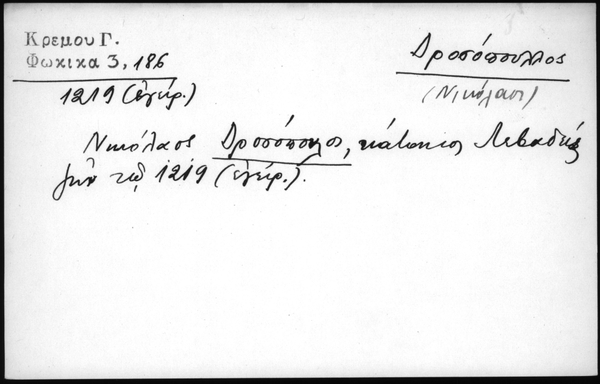 Κρεμου Γ.
Φωκικα 3, 186
1219 (ἐγίρ.)
Δροσόπουλλος
(Νικόλαος)
Νικόλαος Δροσόπουλος, κάτοικος Λεβαδείας
τῷ 1219 (ἐγείρ.).